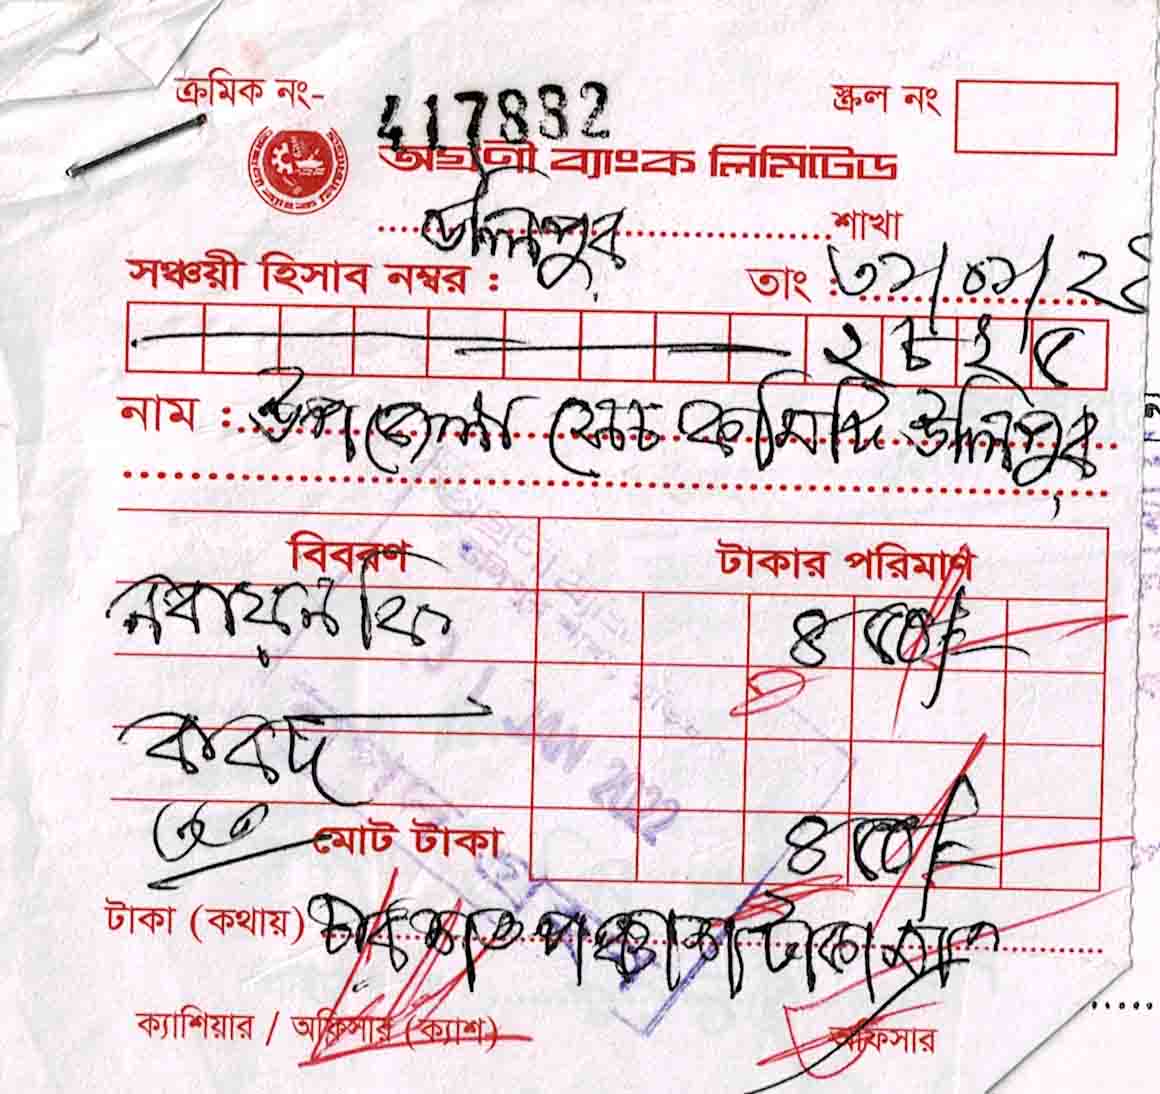 ক্রমিক নং- 417832
স্ক্রল নং
অগ্রণী ব্যাংক লিমিটেড
উলিপুর শাখা
সঞ্চয়ী হিসাব নম্বর :
তাং : ৩১/০১/২২
২৮২৫
নাম : উপজেলা সেচ কমিটি উলিপুর
বিবরণ
টাকার পরিমাণ
নবায়ন ফি
৪৫০/=
বাবদ
মোট টাকা
৪৫০/=
টাকা (কথায়) চারশত পঞ্চাশ টাকা মাত্র
ক্যাশিয়ার / অফিসার (ক্যাশ)
অফিসার
JAN 2022